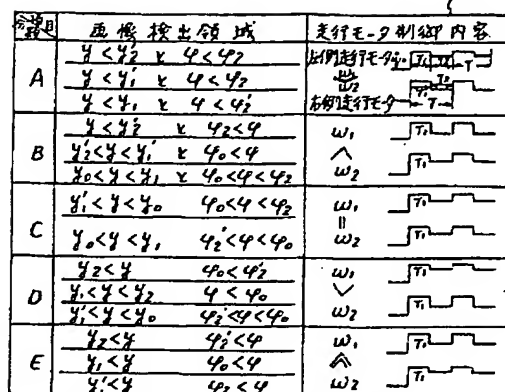 分類 画像検出領域 走行モータ制御内容
A
y<y₂' x φ<φ₂
y<y₂' x φ<φ₂
y<y₁ x φ<φ₂'
左側走行モータ T₁ T
右側走行モータ T
B
y<y₂' x φ₂<φ
y₂'<y<y₁' x φ₀<φ
y₀<y<y₁ x φ₀<φ<φ₂
ω₁ T₁
∧
ω₂ T₁
C
y₁'<y<y₀ φ₀<φ<φ₂
y₀<y<y₁ φ₂'<φ<φ₀
ω₁ T₁
||
ω₂ T₁
D
y₂<y φ₀<φ₂'
y₁<y<y₂ φ<φ₀
y₁'<y<y₀ φ₂'<φ<φ₀
ω₁ T₁
∨
ω₂ T₁
E
y₂<y φ₂'<φ
y₁<y φ₀<φ
y₁'<y φ₂<φ
ω₁ T₁
ω₂ T₁